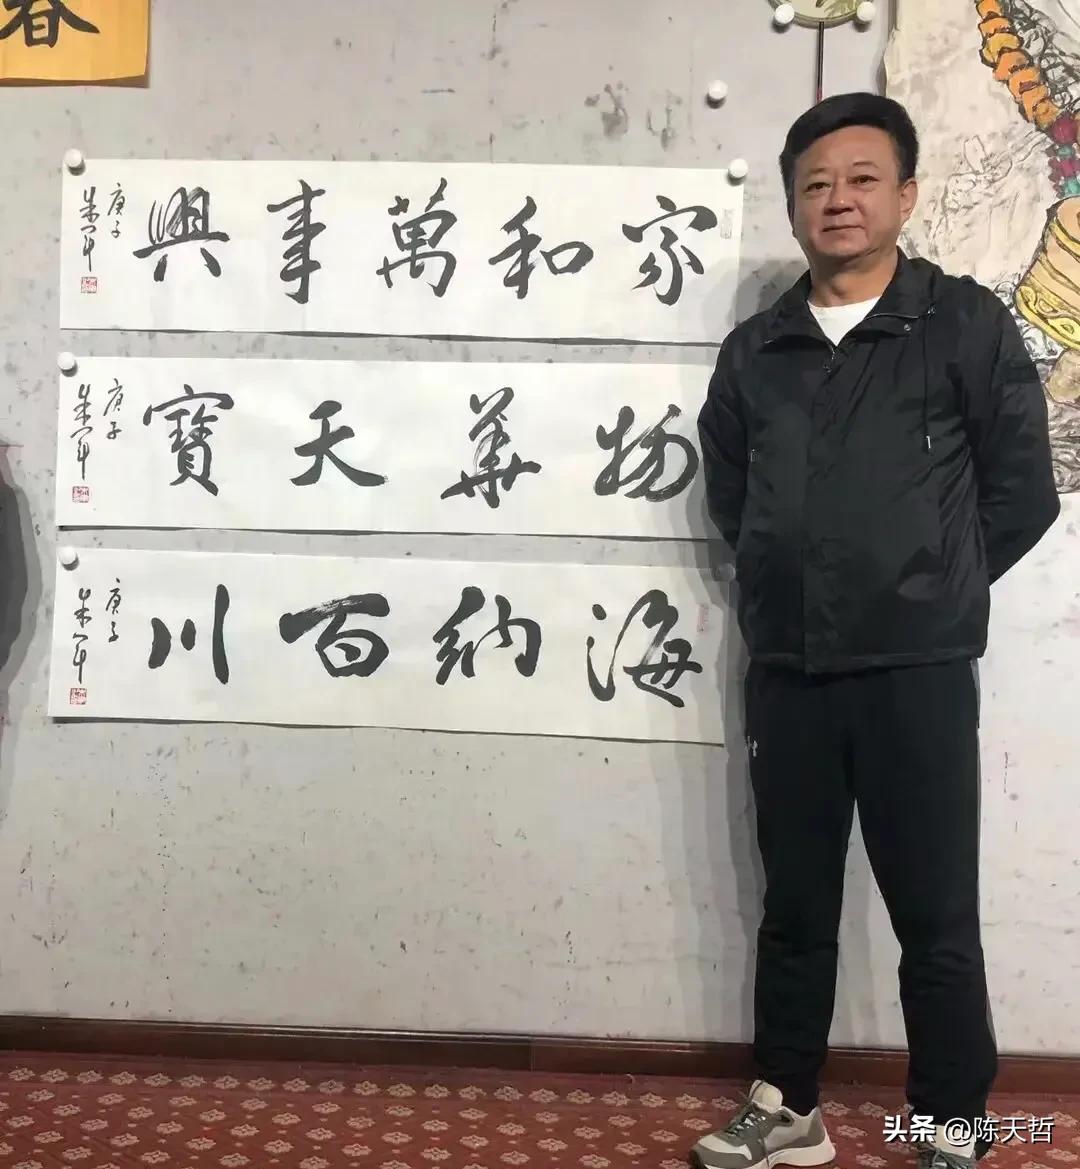 春
家和萬事興
庚子
朱军
物華天寶
庚子
朱军
海纳百川
庚子
朱军
头条 @陈天哲